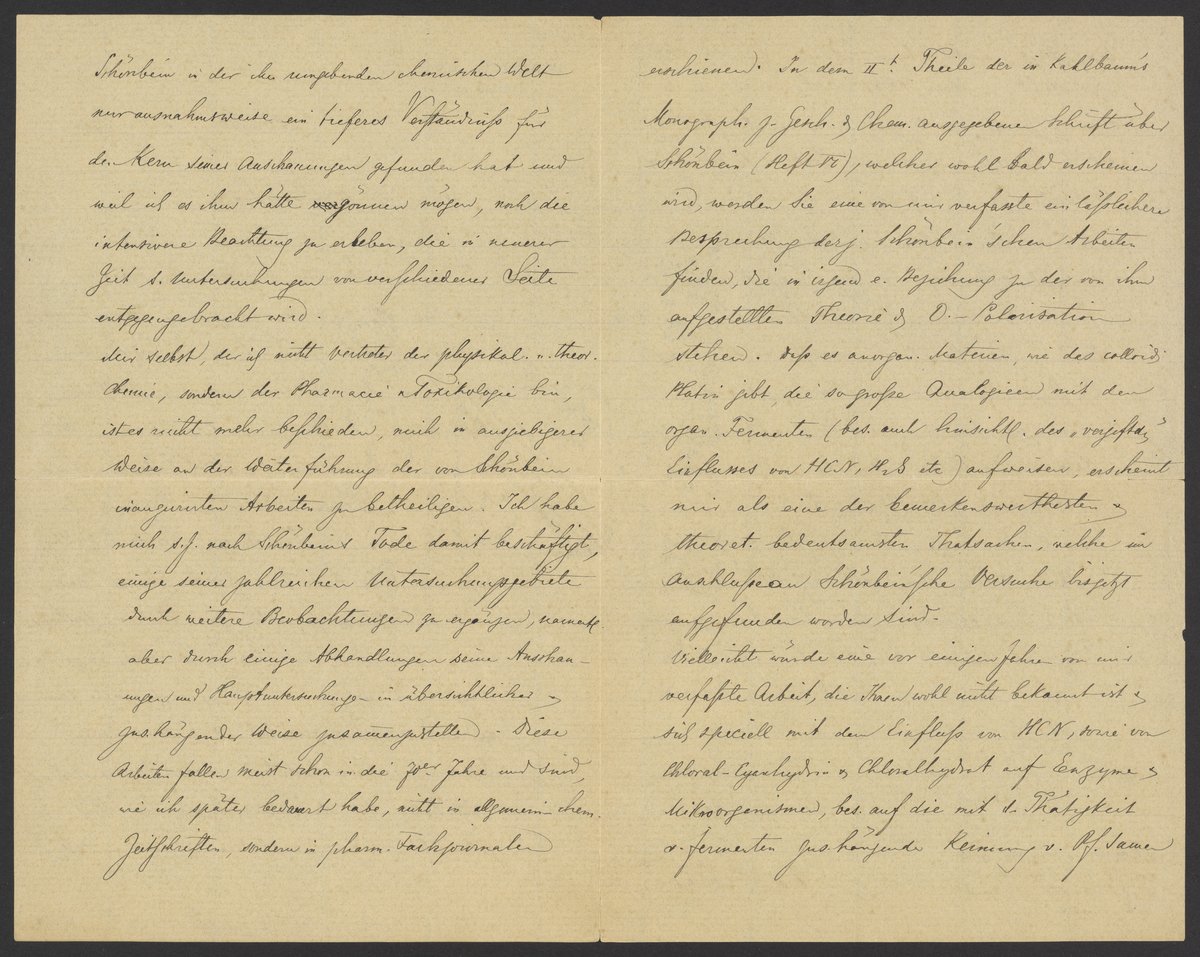 Schönbein in der ihn umgebenden chemischen Welt
nur ausnahmsweise ein tieferes Verständniß für
den Kern seiner Anschauungen gefunden hat und
weil ich es ihm hätte gönnen mögen, noch die
intensivere Beachtung zu erleben, die in neuerer
Zeit s. Untersuchungen von verschiedener Seite
entgegengebracht wird.
Mir selbst, der ich nicht Vertreter der physikal. u. theor.
Chemie, sondern der Pharmacie u Toxikologie bin,
ist es nicht mehr beschieden, mich in ausgiebigerer
Weise an der Weiterführung der von Schönbein
inaugurirten Arbeiten zu betheiligen. Ich habe
mich s. Z. nach Schönbeins Tode damit beschäftigt,
einige seiner zahlreichen Untersuchungsgebiete
durch weitere Beobachtungen zu ergänzen, namentl.
aber durch einige Abhandlungen seine Anschau-
ungen und Hauptuntersuchungen in übersichtlicher &
zus.hängender Weise zusammenzustellen. Diese
Arbeiten fallen meist schon in die 70er Jahre und sind,
wie ich später bedauert habe, nicht in allgemein chem.
Zeitschriften, sondern in pharm. Fachjournalen
erschienen. In dem IIt. Theile der in Kahlbaum's
Monograph. z. Gesch. d Chem. ausgegebenen Schrift über
Schönbein (Heft VI), welcher wohl bald erscheinen
wird, werden Sie eine von mir verfasste einläßlichere
Besprechung derj. Schönbein'schen Arbeiten
finden, die in irgend e. Beziehung zu der von ihm
aufgestellten Theorie d O.-Polarisation
stehen. Daß es anorgan. Materien, wie das colloid.
Platin gibt, die so große Analogieen mit den
organ. Fermenten (bes. auch hinsichtl. des „vergiftdn"
Einflusses von HCN, H2S etc) aufweisen, erscheint
mir als eine der bemerkenswerthesten &
theoret. bedeutsamsten Thatsachen, welche im
Anschluße an Schönbein'sche Versuche bis jetzt
aufgefunden worden sind.
Vielleicht würde eine vor einigen Jahren von mir
verfaßte Arbeit, die Ihnen wohl nicht bekannt ist &
sich speciell mit dem Einfluß von HCN, sowie von
Chloral-Cyanhydrin & Chloralhydrat auf Enzyme &
Mikroorganismen, bes. auf die mit d. Thätigkeit
v. Fermenten zus.hängende Keimung v. Pfl. Samen